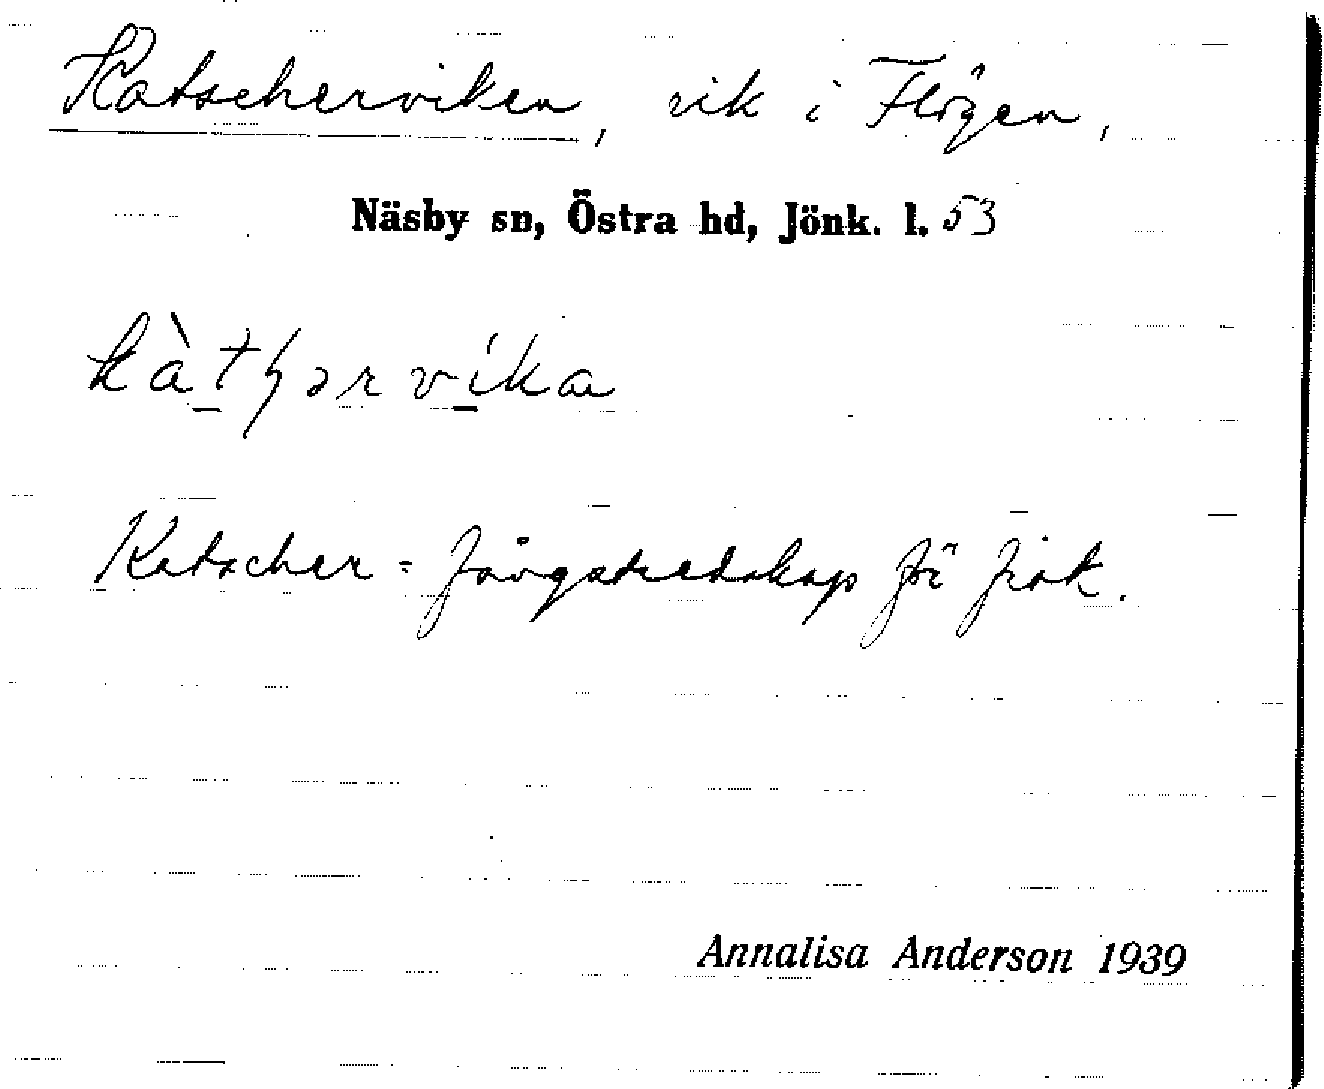 Katscherviken, vik i Flögen,
Näsby sn, Östra hd, Jönk. l. 53
Katscher = fångstredskap för fisk.
Annalisa Anderson 1939